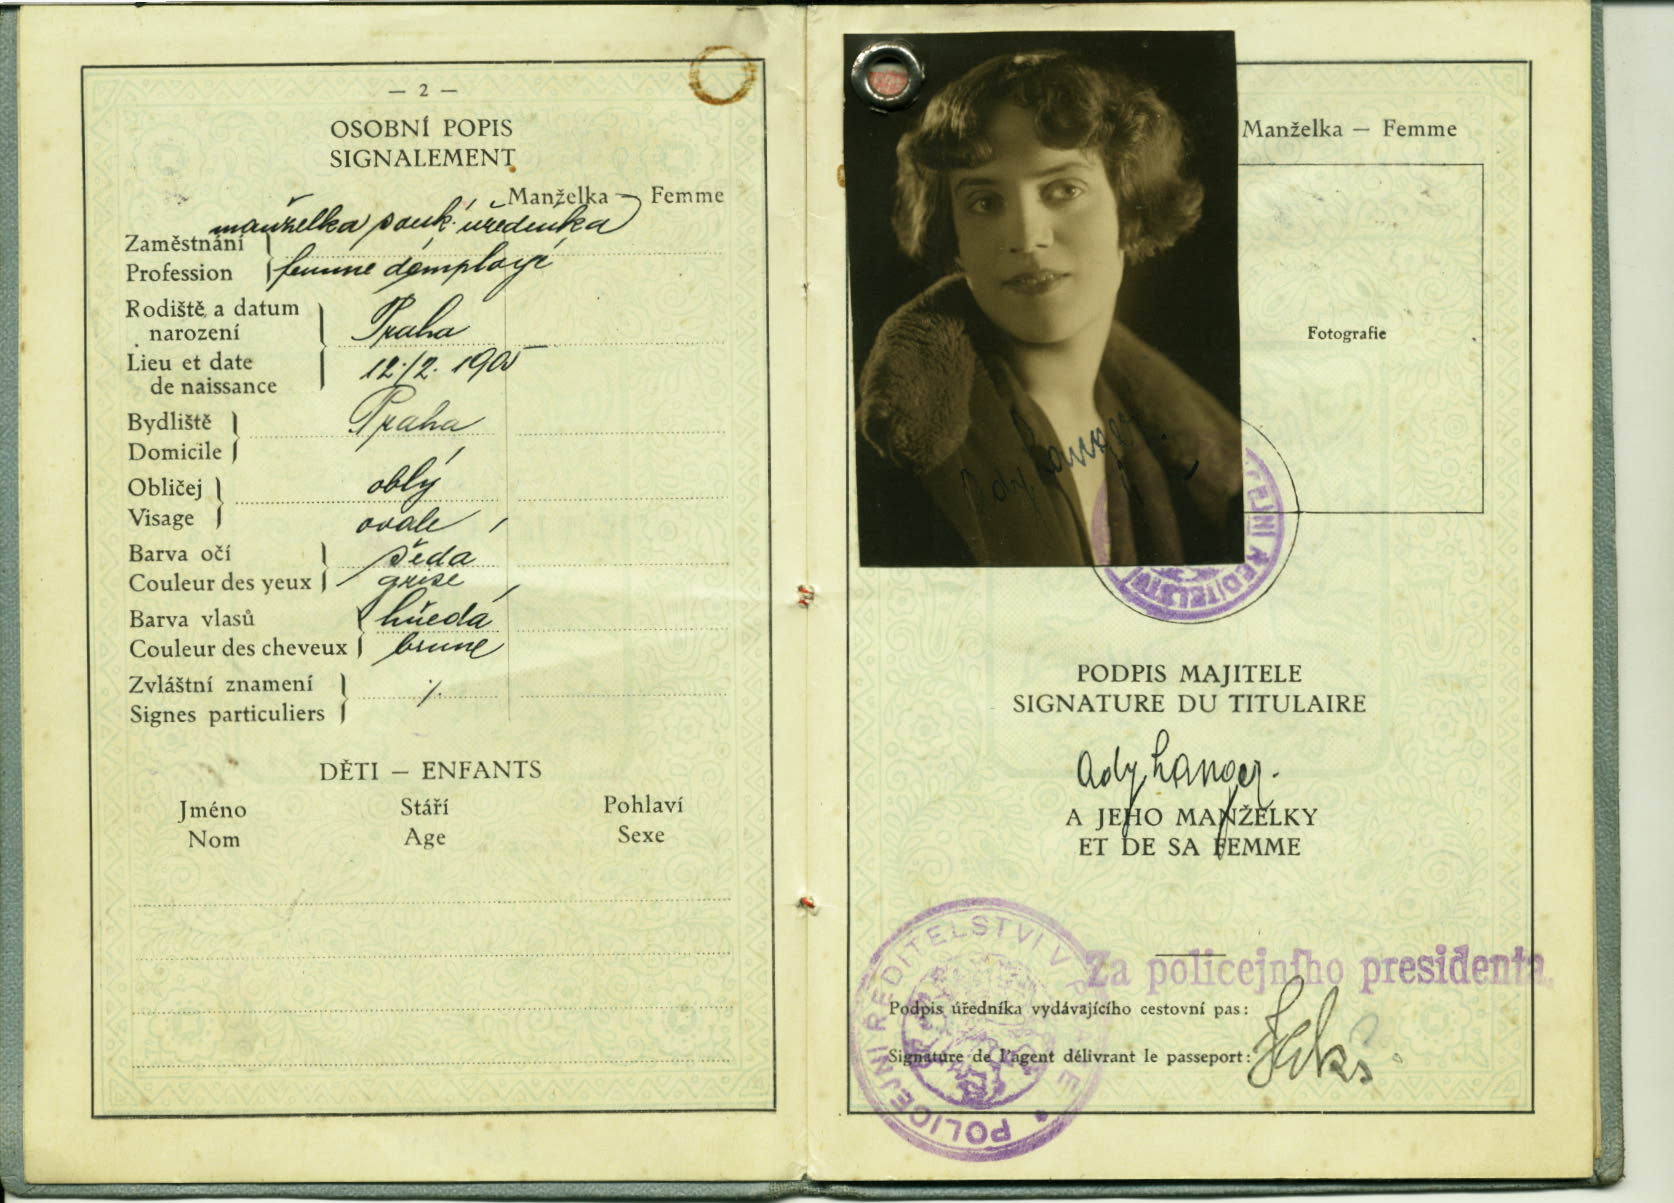 — 2 —
OSOBNÍ POPIS
SIGNALEMENT
Manželka — Femme
manželka souk. úředníka
Zaměstnání
Profession femme d'employé
Rodiště a datum
narození Praha
Lieu et date
de naissance 12./2. 1905
Bydliště Praha
Domicile
Obličej oblý
Visage ovale
Barva očí šedá
Couleur des yeux grise
Barva vlasů hnědá
Couleur des cheveux brune
Zvláštní znamení ./.
Signes particuliers
DĚTI — ENFANTS
Jméno Stáří Pohlaví
Nom Age Sexe
Manželka — Femme
Fotografie
Ady Langer
EJNÍ ŘEDITELSTV
PODPIS MAJITELE
SIGNATURE DU TITULAIRE
Ady Langer.
A JEHO MANŽELKY
ET DE SA FEMME
POLICEJNÍ ŘEDITELSTVÍ V P ZE
Za policejního presidenta
Podpis úředníka vydávajícího cestovní pas:
Signature de l'agent délivrant le passeport: